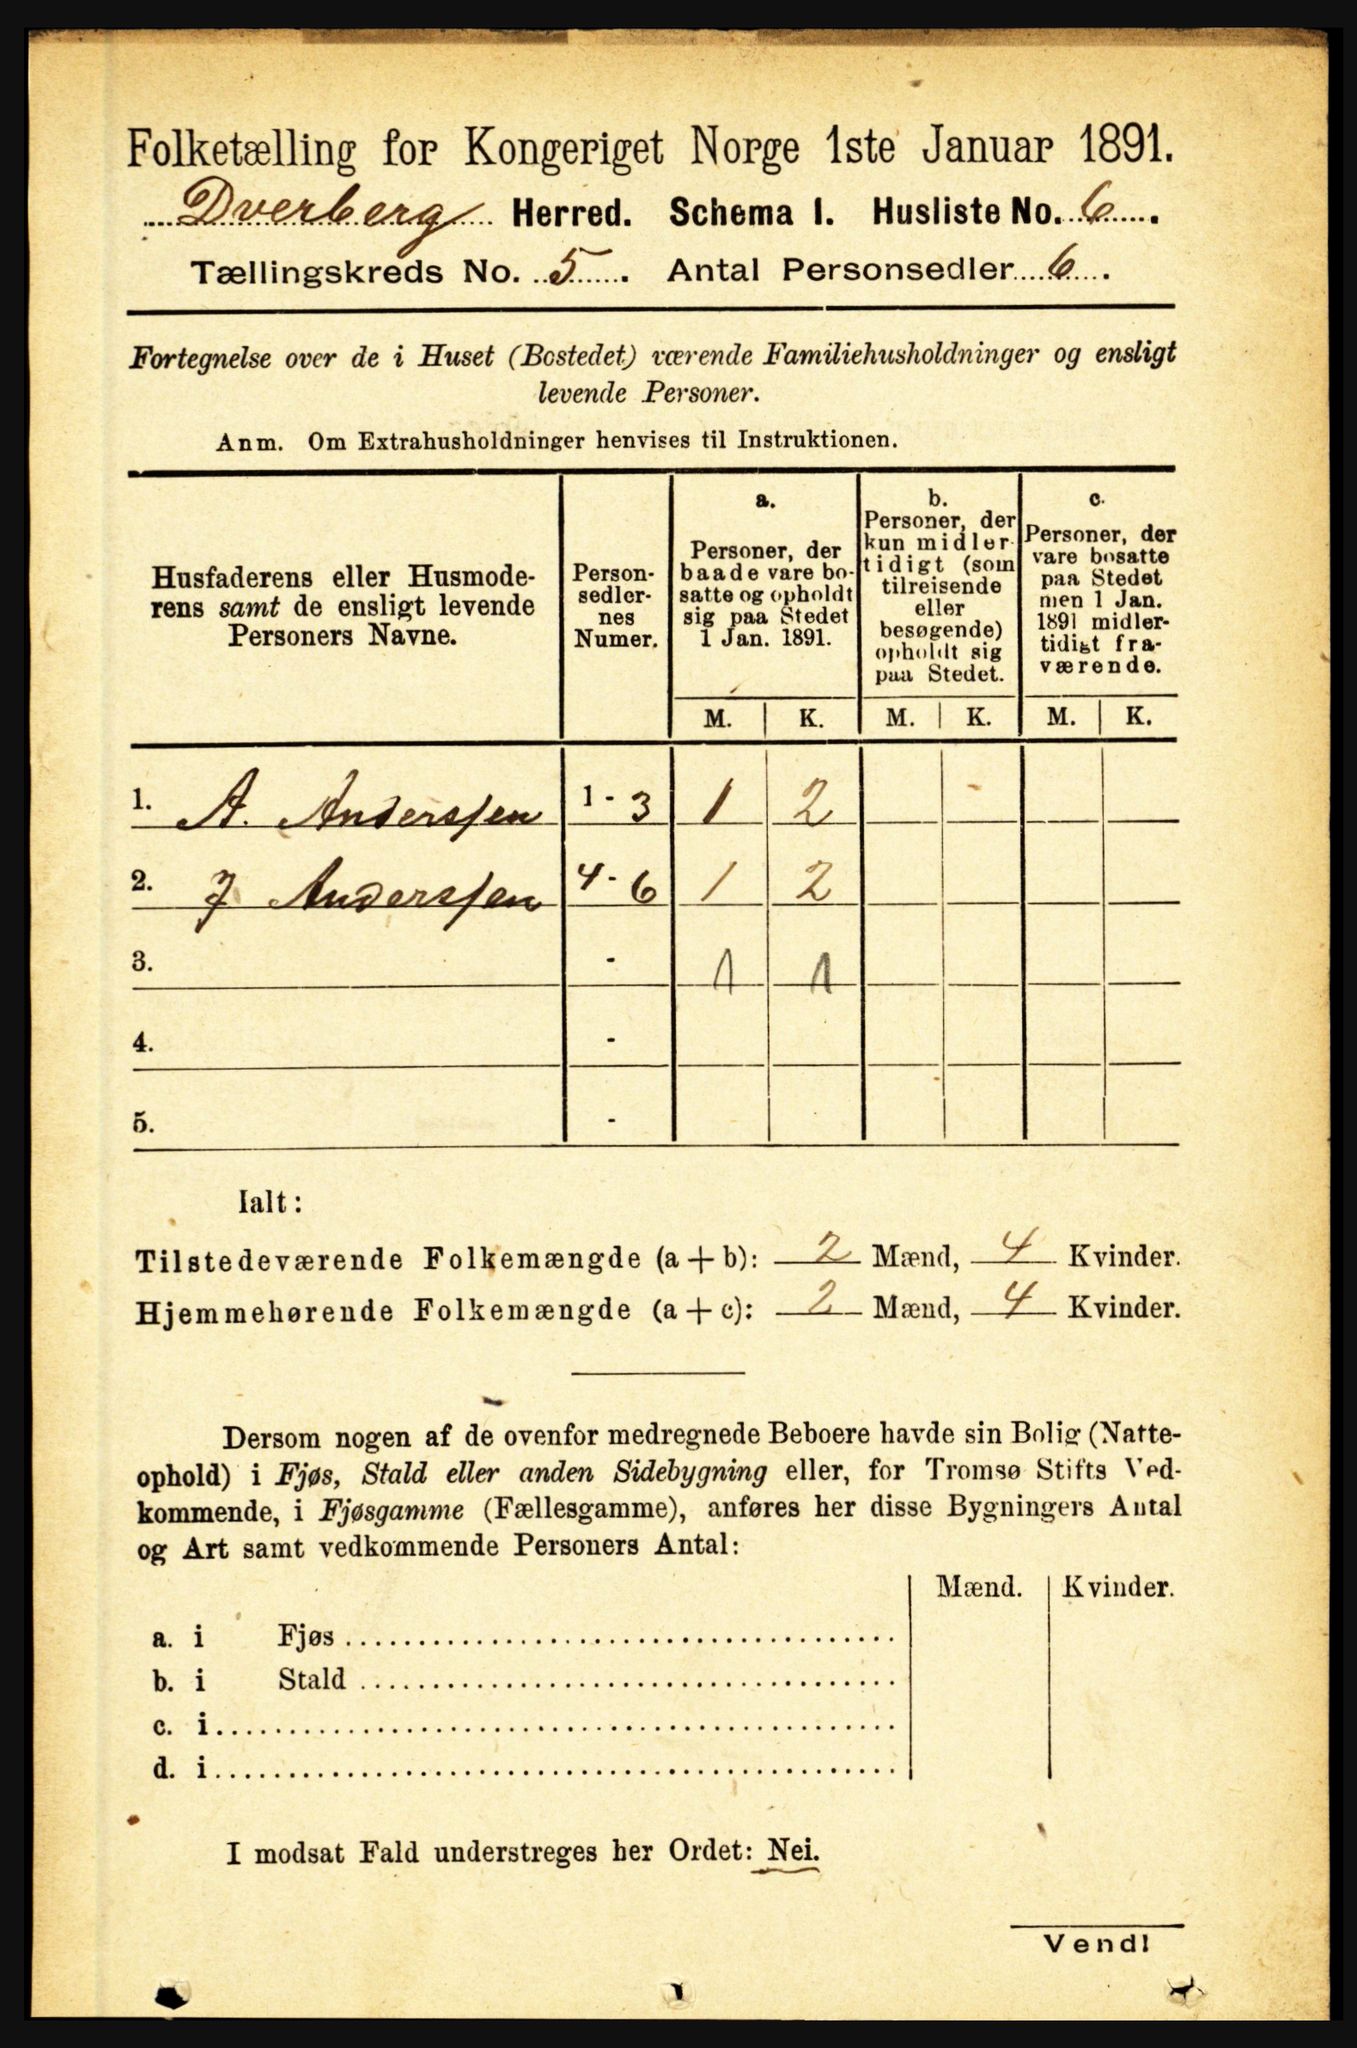 Folketælling for Kongeriget Norge 1ste Januar 1891.
Dverberg Herred. Schema I. Husliste No. 6.
Tællingskreds No. 5. Antal Personsedler 6.
Fortegnelse over de i Huset (Bostedet) værende Familiehusholdninger og ensligt
levende Personer.
Anm. Om Extrahusholdninger henvises til Instruktionen.
Husfaderens eller Husmode-
rens samt de ensligt levende
Personers Navne.
Person-
sedler-
nes
Numer.
a.
Personer, der
baade vare bo-
satte og opholdt
sig paa Stedet
1 Jan. 1891.
b.
Personer, der
kun midler-
tidigt (som
tilreisende
eller
besøgende)
opholdt sig
paa Stedet.
c.
Personer, der
vare bosatte
paa Stedet
men 1 Jan.
1891 midler-
tidigt fra-
værende.
M. K. M. K. M. K.
1. A. Anderssen 1 - 3 1 2
2. J Anderssen 4 - 6 1 2
3. - 1 1
4. -
5. -
Ialt:
Tilstedeværende Folkemængde (a + b): 2 Mænd, 4 Kvinder.
Hjemmehørende Folkemængde (a + c): 2 Mænd, 4 Kvinder.
Dersom nogen af de ovenfor medregnede Beboere havde sin Bolig (Natte-
ophold) i Fjøs, Stald eller anden Sidebygning eller, for Tromsø Stifts Ved-
kommende, i Fjøsgamme (Fællesgamme), anføres her disse Bygningers Antal
og Art samt vedkommende Personers Antal:
Mænd. Kvinder.
a. i Fjøs
b. i Stald
c. i
d. i
I modsat Fald understreges her Ordet: Nei.
Vend!